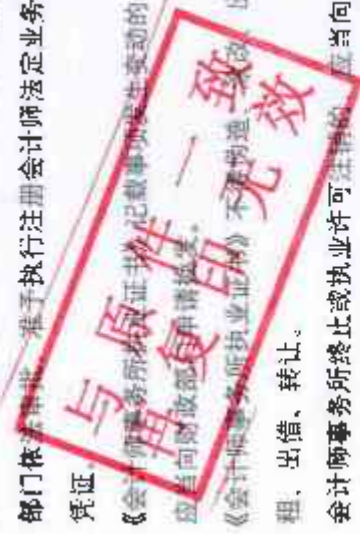 部门依法审批,准予执行注册会计师法定业务
凭证。
《会计师事务所执业证书》记载事项发生变动的
应当向财政部门申请换发。
《会计师事务所执业证书》不得伪造、涂改、
租、出借、转让。
会计师事务所终止或执业许可注销的,应当向
与原件一致
再复印无效